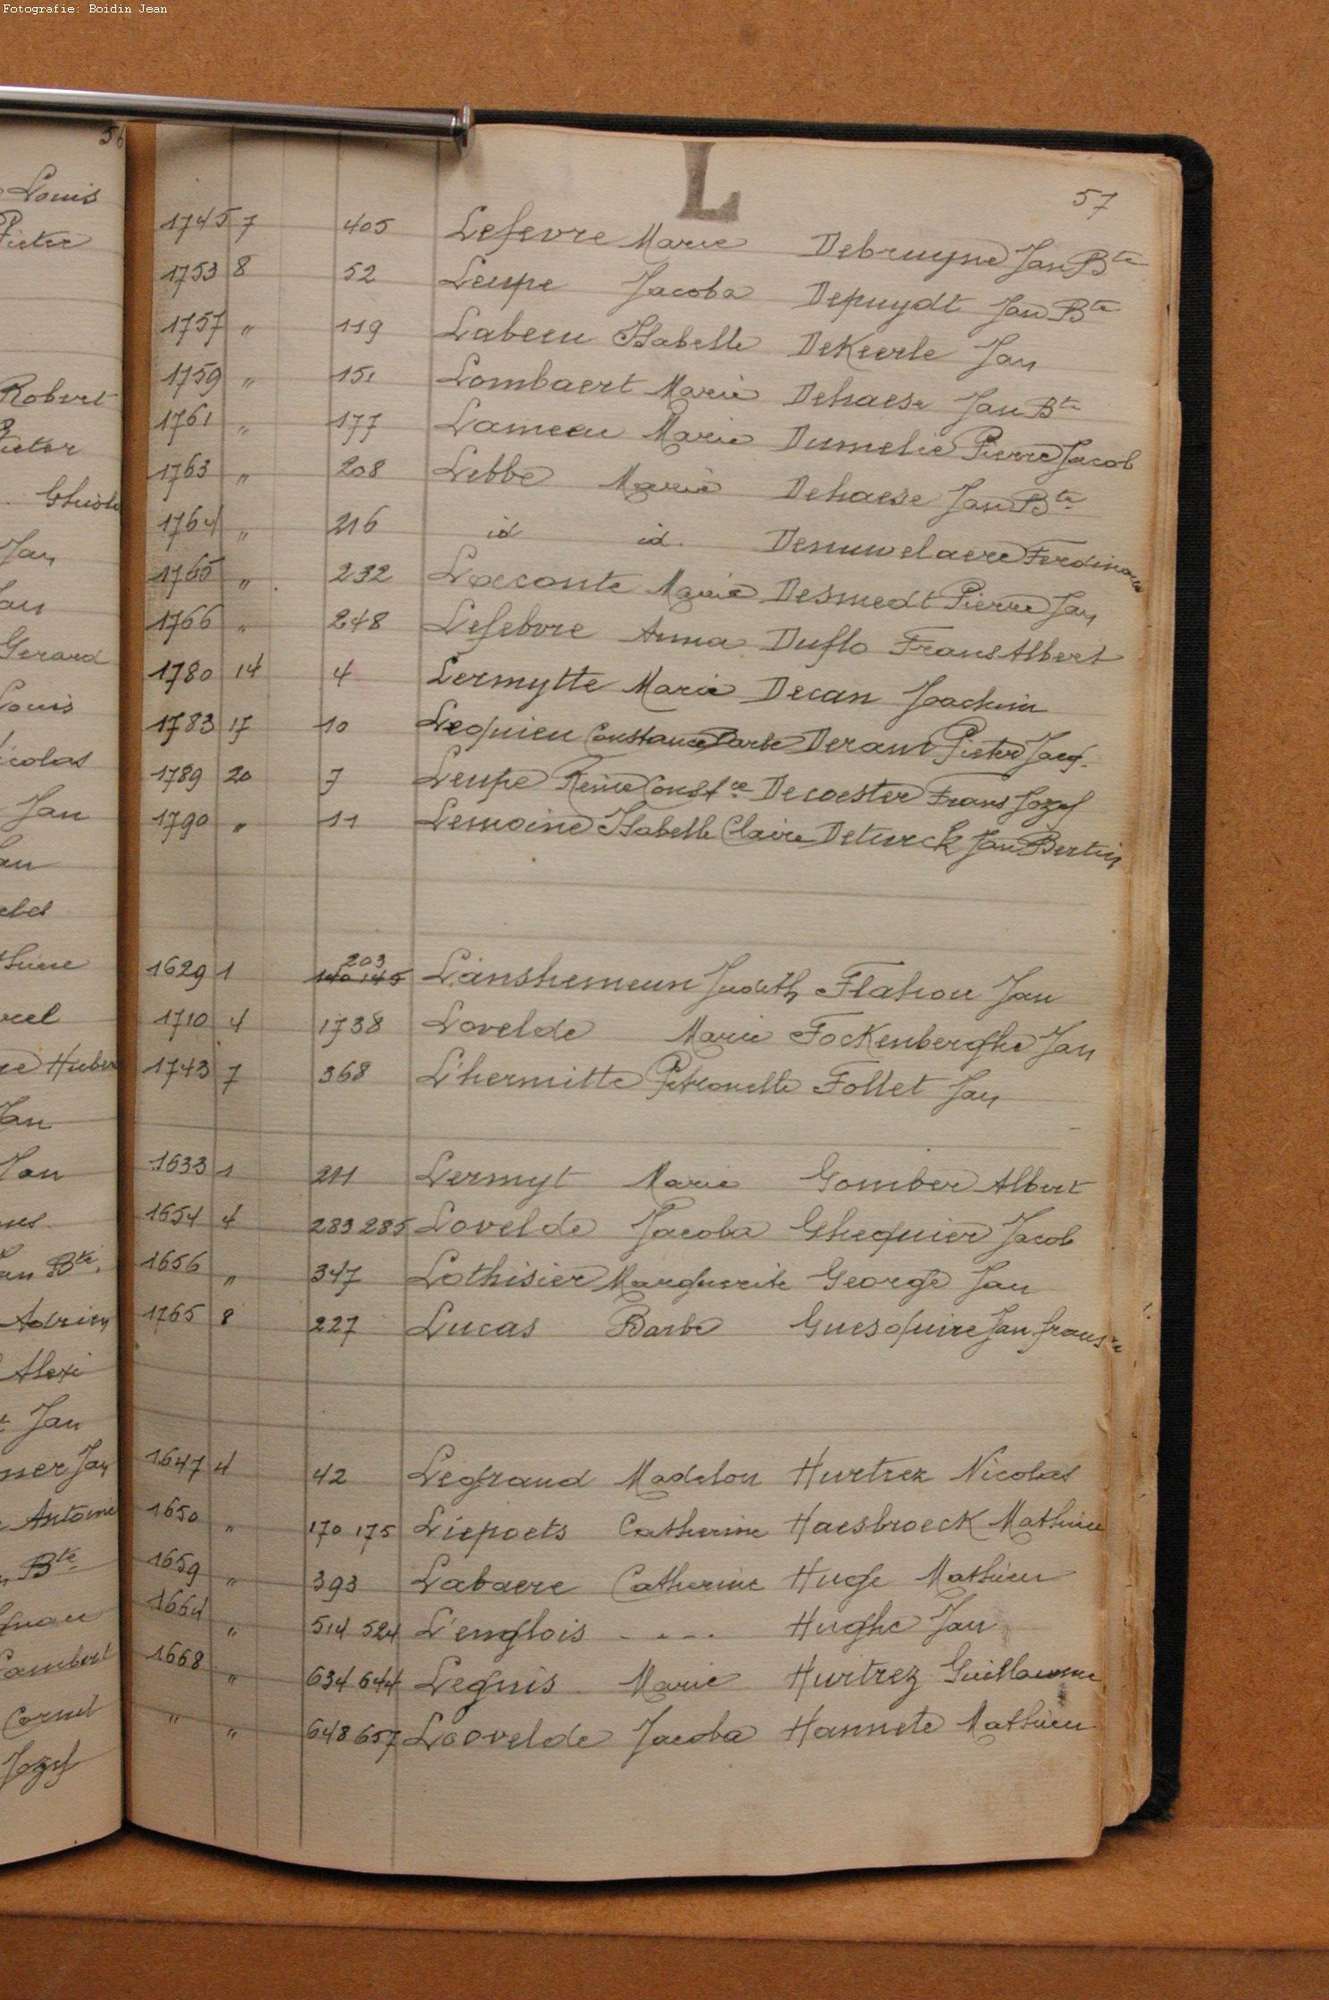 Fotografie: Boidin Jean
56
Louis
Pieter
Robert
Pieter
Jan
Gerard
Louis
Nicolas
Jan
Jan
Jan
Bte
Adrien
Alexi
Jan
Jan
Antoine
Bte
Lambert
Cornel
Jozef
L
57
1745 7 405 Lefevre Marie Debruyne Jan Bte
1753 8 52 Leupe Jacoba Depuydt Jan Bte
1757 " 119 Labeeu Isabelle DeKeerle Jan
1759 " 151 Lombaert Marie Dehaese Jan Bte
1761 " 177 Lameeu Marie Dumelie Pierre Jacob
1763 " 208 Lebbe Marie Dehaese Jan Bte
1764 " 216 id id. Denuwelaere Ferdinand
1765 " 232 Laconte Marie Desmedt Pierre Jan
1766 " 248 Lefebvre Anna Duflo Frans Albert
1780 14 4 Lermytte Marie Decan Joachim
1783 17 10 Lequieu Constance Barbe Deram Pieter Jacq.
1789 20 7 Leupe Reine Constce Decoester Frans Jozef
1790 " 11 Lemoine Isabelle Claire Deturck Jan Bertin
203
1629 1 140 145 Lanshemeun Judith Flahou Jan
1710 4 1738 Lovelde Marie Fockenberghe Jan
1743 7 368 L'hermitte Petronelle Follet Jan
1633 1 211 Lermyt Marie Gomber Albert
1654 4 283 285 Lovelde Jacoba Ghequier Jacob
1656 " 347 Lothisier Marguerite George Jan
1765 8 227 Lucas Barbe Guesquire Jan
1647 4 42 Legrand Madelon Hurtrez Nicolas
1650 " 170 175 Liepoets Catherine Haesbroeck Mathieu
1659 " 393 Labaere Catherine Huge Mathieu
1664 " 514 524 L'englois - - - - Hughe Jan
1668 " 634 644 Leguis Marie Hurtrez Guillaume
" " 648 657 Loovelde Jacoba Hannete Mathieu